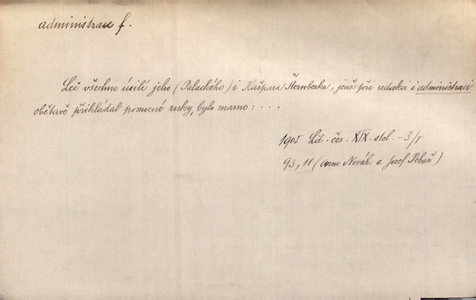 administrace f.
Leč všechno úsilí jeho (Palackého) i Kašpara Šternberka, jenž při redakci i administraci
obětavě přikládal pomocné ruky, bylo marno: . . .
1905 Lit. čes. XIX. stol. - 3/I
93, 11 (Arne Novák a Josef Pekař)